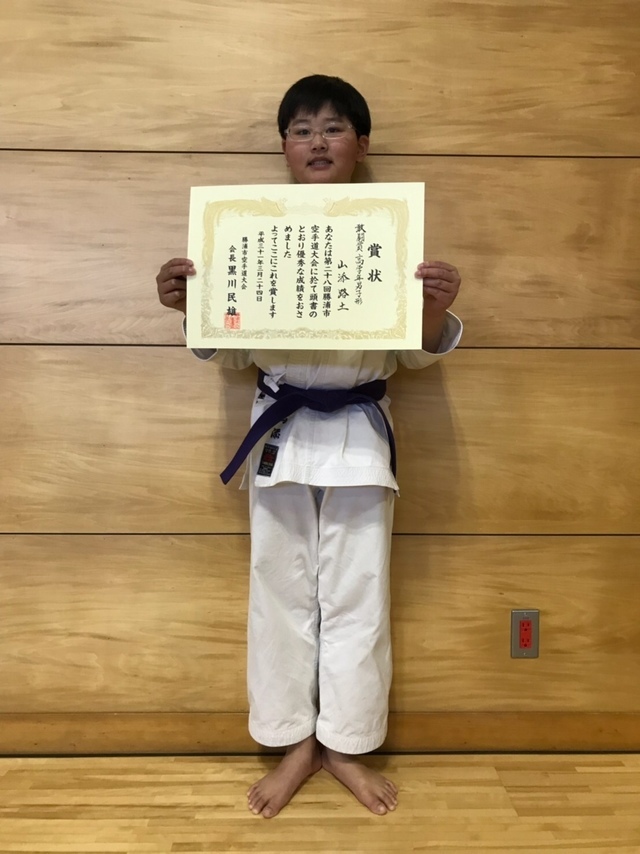 賞状
敢闘賞 高学年男子形
山添路土
あなたは第二十八回勝浦市
空手道大会に於て頭書の
とおり優秀な成績をおさ
めました
よってここにこれを賞します
平成三十一年三月二十四日
勝浦市空手道大会
会長 黒川民雄